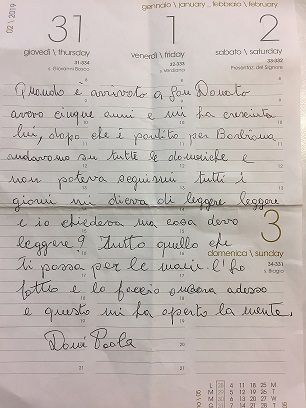 02 \ 2019
gennaio \ january _ febbraio \ february
31 1 2
giovedì \ thursday venerdì \ friday sabato \ saturday
31-334 32-333 33-332
s. Giovanni Bosco s. Verdiana Presentaz. del Signore
Quando è arrivato a San Donato
avevo cinque anni e mi ha cresciuta
lui, dopo che è partito per Barbiana
andavamo su tutte le domeniche e
non poteva seguirmi tutti i
giorni mi diceva di leggere leggere
e io chiedevo ma cosa devo
leggere? Tutto quello che
3
domenica \ sunday
34-331
s. Biagio
ti passa per le mani. L'ho
fatto e lo faccio ancora adesso
e questo mi ha aperto la mente.
Paola